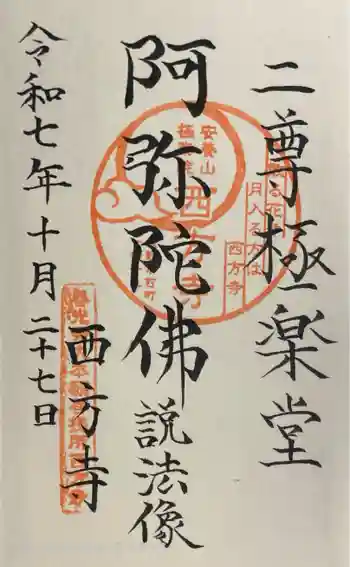 二尊極楽堂
阿弥陀佛説法像
西方寺
令和七年十月二十七日
安養山
西方寺
月入る方は
西方寺